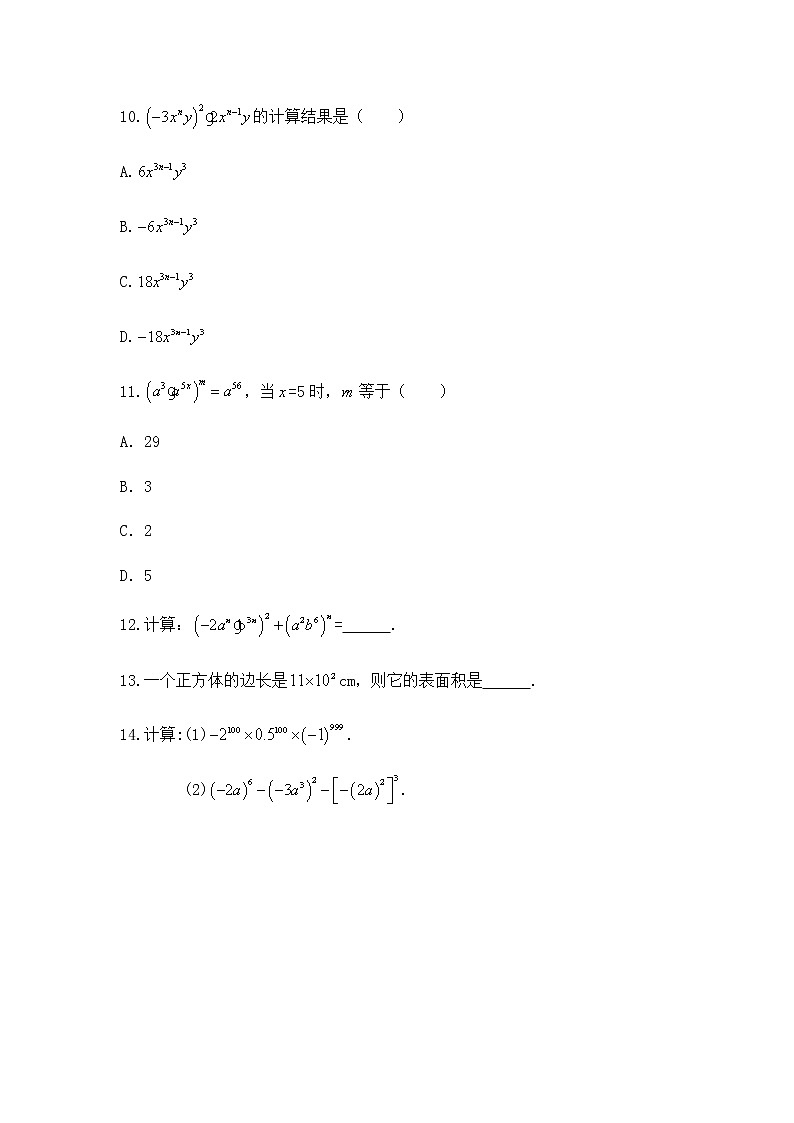 10.(−3xⁿy)²g2xⁿ⁻¹y的计算结果是（　　）
A.6x³ⁿ⁻¹y³
B.−6x³ⁿ⁻¹y³
C.18x³ⁿ⁻¹y³
D.−18x³ⁿ⁻¹y³
11.(a³ga⁵ˣ)ᵐ=a⁵⁶,当x=5时,m 等于（　　）
A. 29
B. 3
C. 2
D. 5
12.计算：(−2aⁿgb³ⁿ)²+(a²b⁶)ⁿ=______.
13.一个正方体的边长是11×10²cm，则它的表面积是______.
14.计算:(1)−2¹⁰⁰×0.5¹⁰⁰×(−1)⁹⁹⁹.
(2)(−2a)⁶−(−3a³)²−[−(2a)²]³.